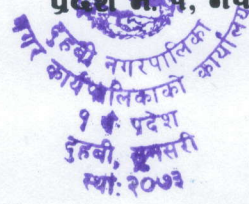 प्रदेश नं. १,
दुहवी नगरपालिका
नगर कार्यपालिकाको कार्यालय
१ नं. प्रदेश
दुहवी, सुनसरी
स्था: २०७३